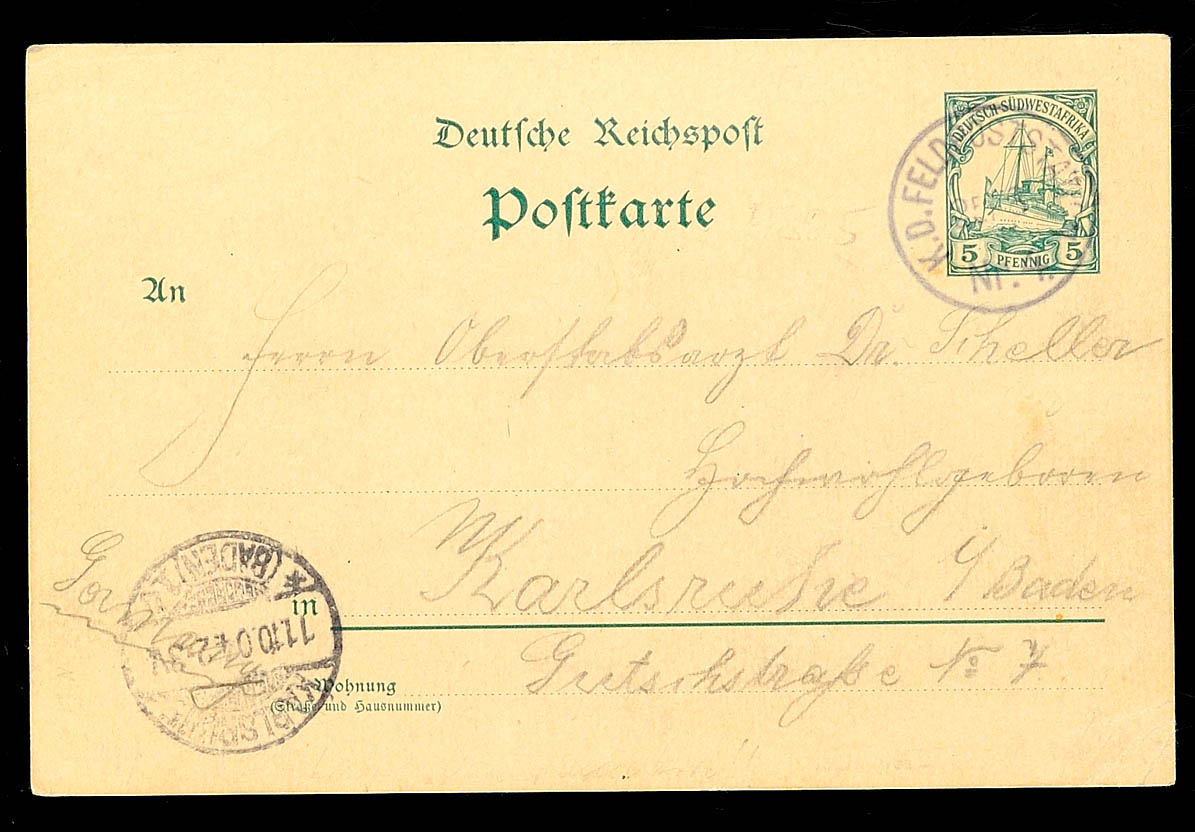 Deutsche Reichspost
Postkarte
DEUTSCH-SÜDWESTAFRIKA
5 PFENNIG 5
K.D. FELDPOSTSTAT.
Nr. 1.
An
Herrn Oberstabsarzt Dr. Scheller
Hochwohlgeboren
Germany
in Karlsruhe i/ Baden
(BADEN)
11.10.04
KARLSRUHE
Wohnung
(Straße und Hausnummer)
Gutschstraße No 7